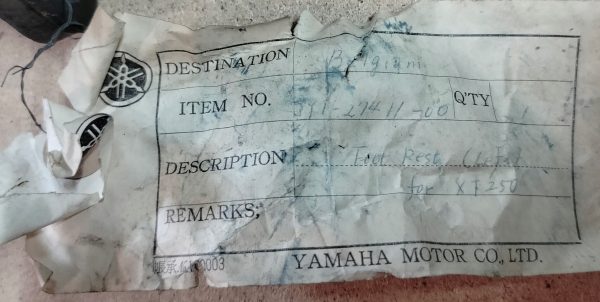 DESTINATION Belgium
ITEM NO. -27411-00 Q'TY 1
DESCRIPTION Foot Rest
for XT250
REMARKS;
YAMAHA MOTOR CO., LTD.